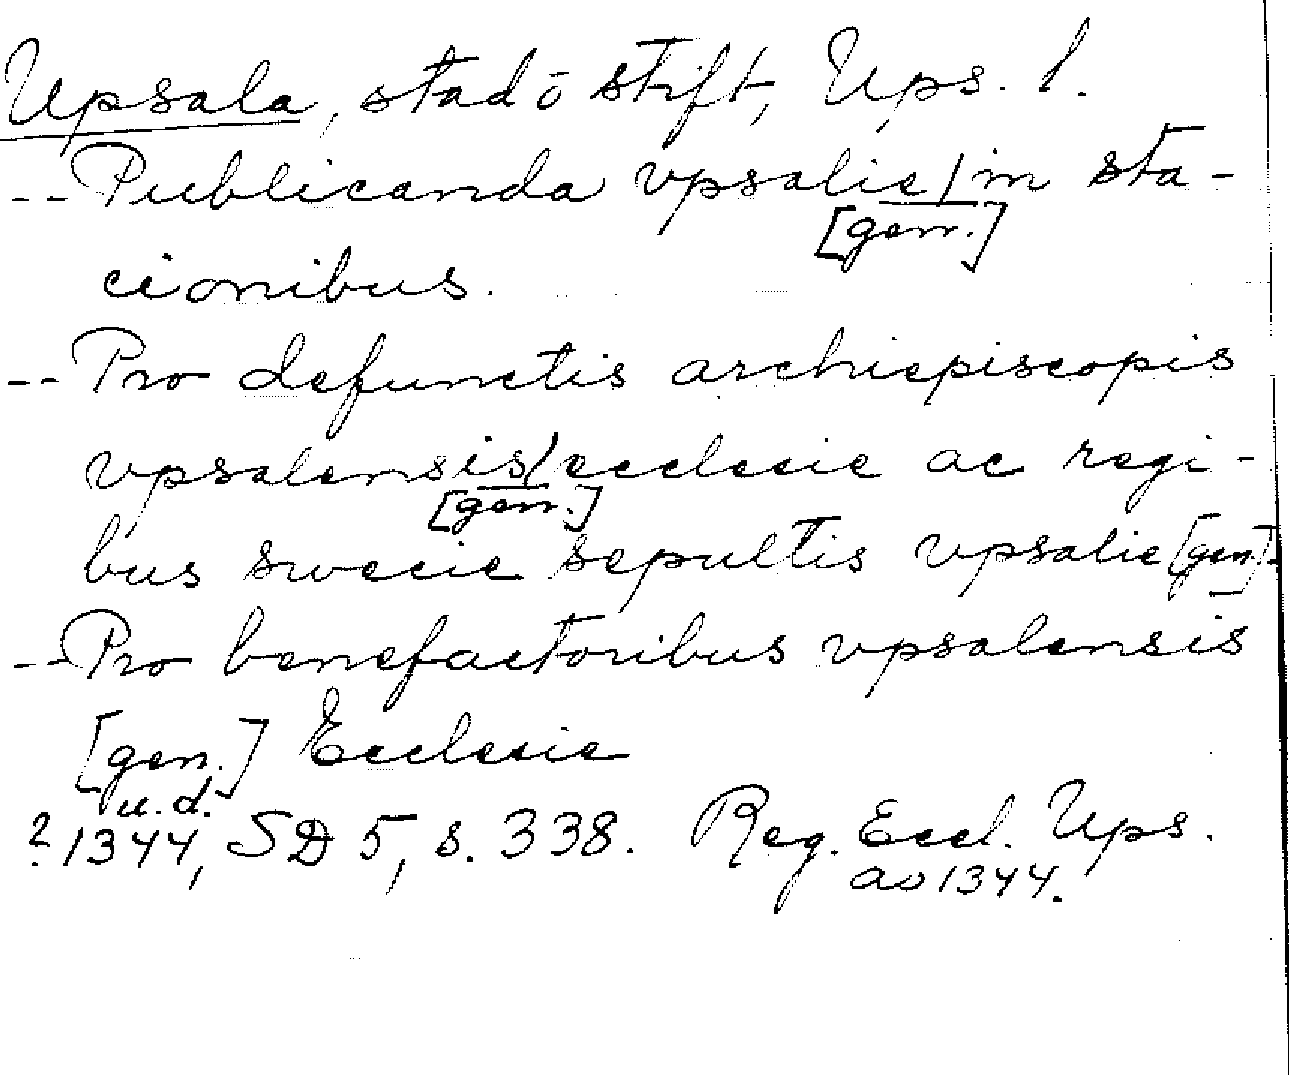 Upsala, stad ō stift, Ups. l.
-- Publicanda vpsalie/in sta-
[gen.]
cionibus.
-- Pro defunctis archiepiscopis
vpsalensis/ecclesie ac regi-
[gen.]
bus swecie sepultis vpsalie [gen].
-- Pro benefactoribus vpsalensis
[gen.] Ecclesie
u.d.
? 1344, SD 5, s. 338. Reg. Eccl. Ups.
ao 1344.